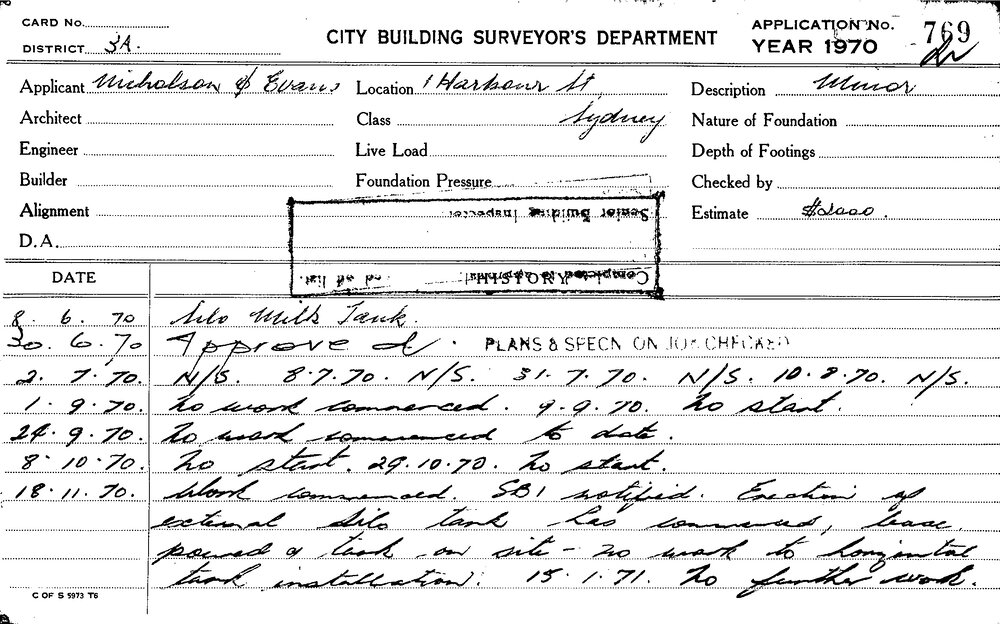 CARD No.
DISTRICT 3A.
CITY BUILDING SURVEYOR'S DEPARTMENT
APPLICATION No. 769
YEAR 1970
Applicant Nicholson & Evans Location 1 Harbour St, Description Minor
Architect Class Sydney Nature of Foundation
Engineer Live Load Depth of Footings
Builder Foundation Pressure Checked by
Alignment Senior Building Inspector Estimate $2000.
D.A.
Completed
DATE
8. 6. 70 Silo Milk Tank.
30. 6. 70 Approved. PLANS & SPECN ON JOB CHECKED
2. 7. 70. N/S. 8.7.70. N/S. 31.7.70. N/S. 10.8.70. N/S.
1. 9. 70. No work commenced. 9.9.70. No start.
24. 9. 70. No work commenced to date.
8. 10. 70. No start. 29.10.70. No start.
18. 11. 70. Work commenced. SBI notified. Erection of
external silo tank has commenced, base
poured & tank on site - no work to horizontal
tank installation. 15.1.71. No further work.
C OF S 5973 T6